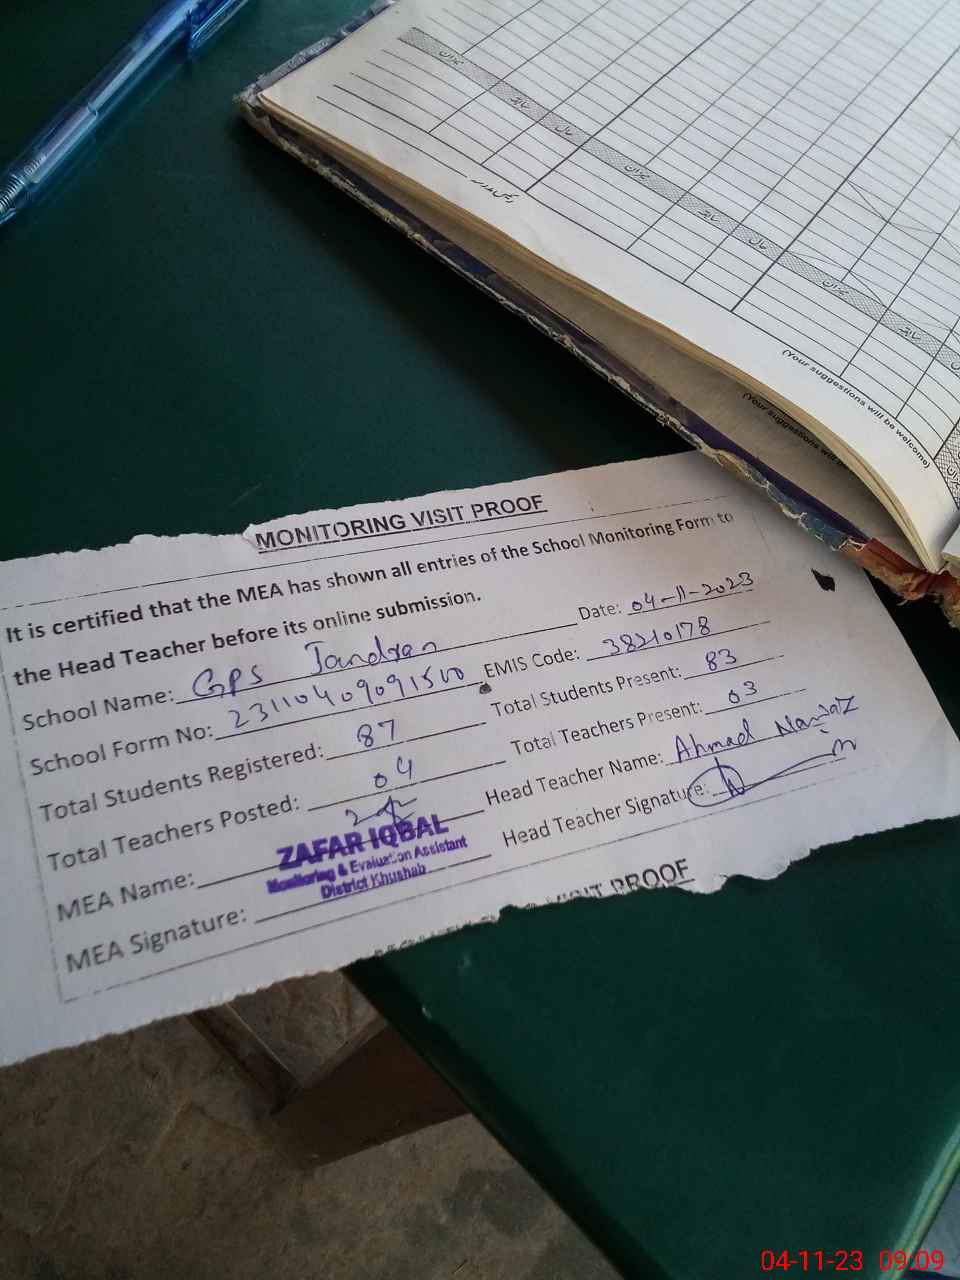 نگران
سابقہ
حال
نگران
سابقہ
حال
نگران
سابقہ
(Your suggestions will be welcome)
(Your suggestions will be
MONITORING VISIT PROOF
It is certified that the MEA has shown all entries of the School Monitoring Form to
the Head Teacher before its online submission.
Date: 04-11-2023
School Name: GPS Jandran
EMIS Code: 38210178
School Form No: 23110409091500
Total Students Present: 83
Total Students Registered: 87
Total Teachers Present: 03
Total Teachers Posted: 04
Head Teacher Name: Ahmad Nawaz
MEA Name:
ZAFAR IQBAL
Monitoring & Evaluation Assistant
District Khushab
Head Teacher Signature:
MEA Signature:
VISIT PROOF
04-11-23 09:09